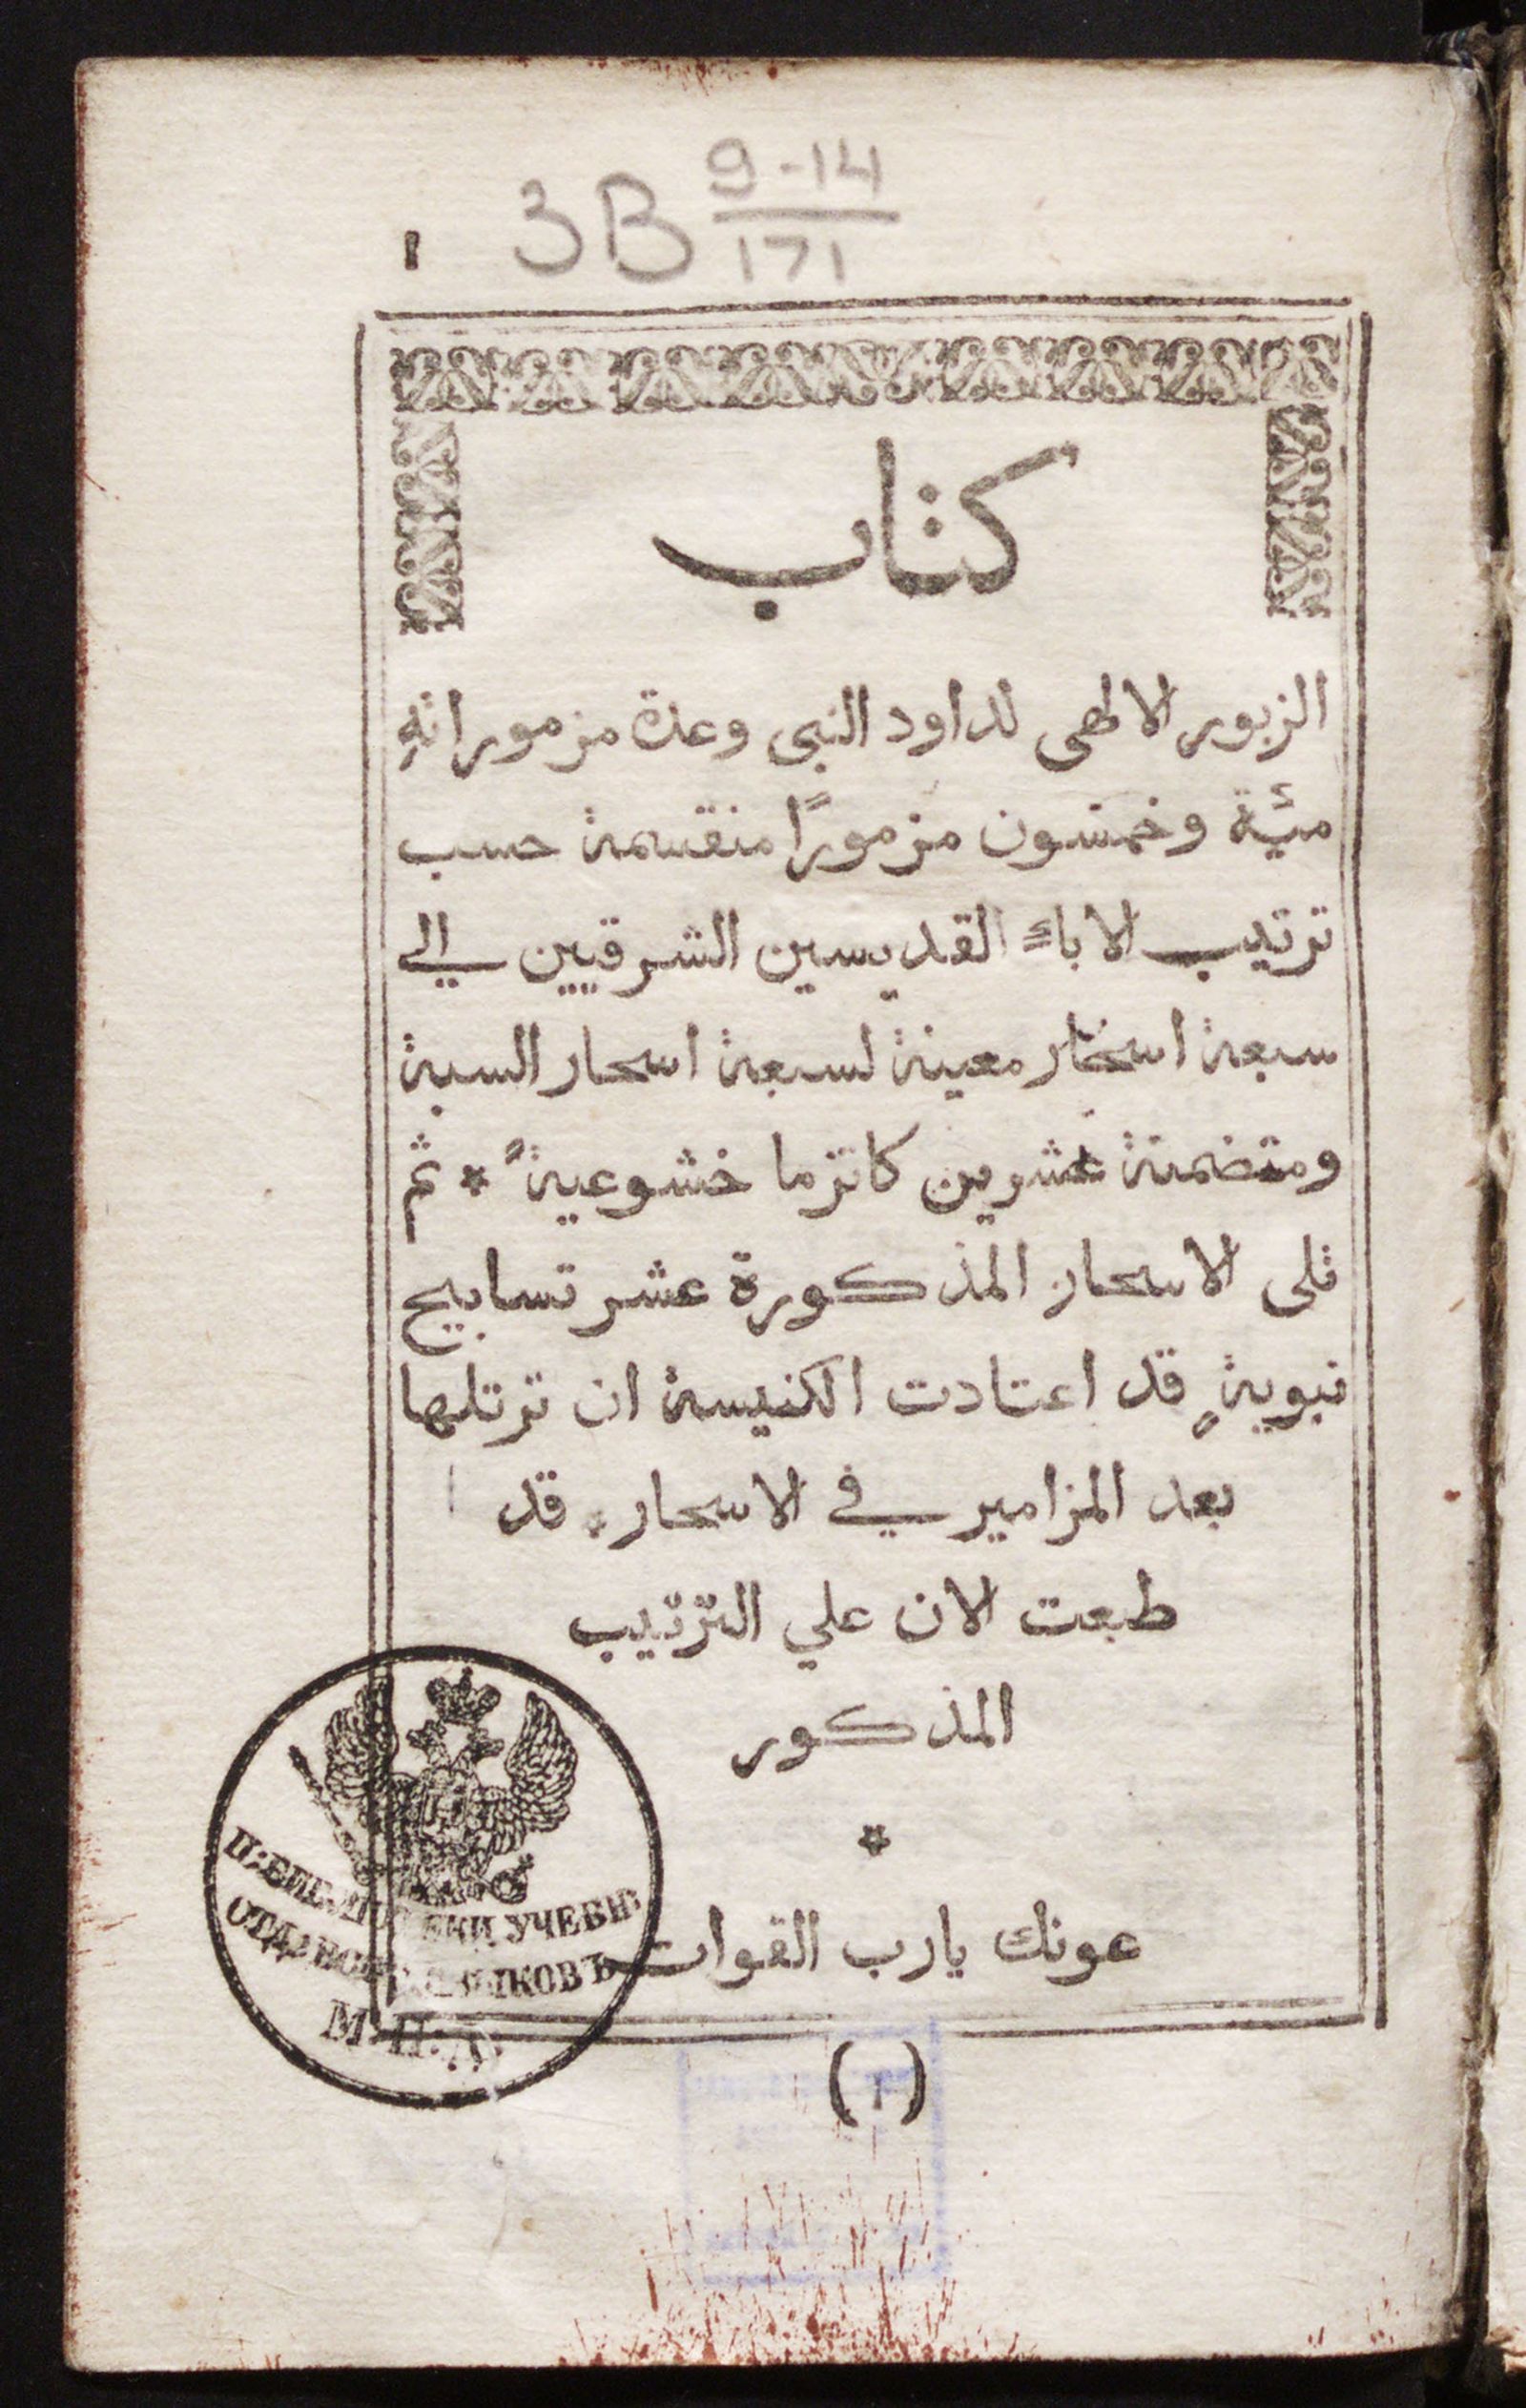 3В 9-14
171
١
كتاب
الزبور الالهى لداود النبى وعدة مزموراتهِ
مئَة وخمسون مزمورًا منقسمة حسب
ترتيب الاباء القديسين الشرقيين الي
سبعة اسحار معينة لسبعة اسحار السبة
ومتضمنة عشرين كاتزما خشوعيةً * ثم
تلى الاسحار المذكورة عشر تسابيح
نبويةٍ قد اعتادت الكنيسة ان ترتلها
بعد المزامير في الاسحار * قد
طبعت الان علي الترتيب
المذكور
*
عونك يارب القوات
УЧЕБН:
(١)